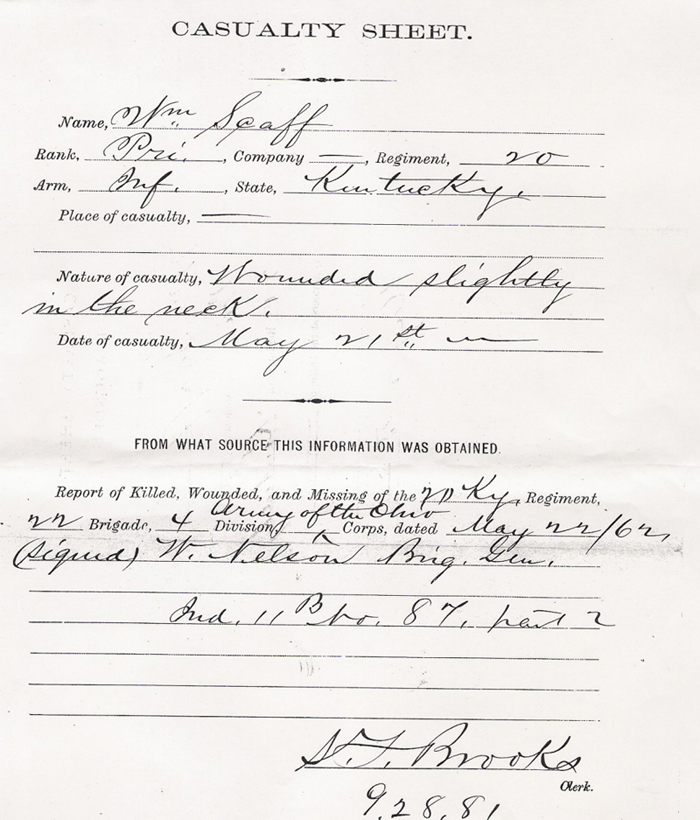 CASUALTY SHEET.
Name, Wm Scaff
Rank, Pri. , Company — , Regiment, 20
Arm, Inf. , State, Kentucky.
Place of casualty, —
Nature of casualty, Wounded slightly
in the neck.
Date of casualty, May 21st —
FROM WHAT SOURCE THIS INFORMATION WAS OBTAINED.
Report of Killed, Wounded, and Missing of the 20 Ky. Regiment,
22 Brigade, 4 Division, Army of the Ohio Corps, dated May 22/62,
(Signed) W. Nelson Brig. Gen.
11 B No. 87, part 2
Brooks
Clerk.
9,28,81